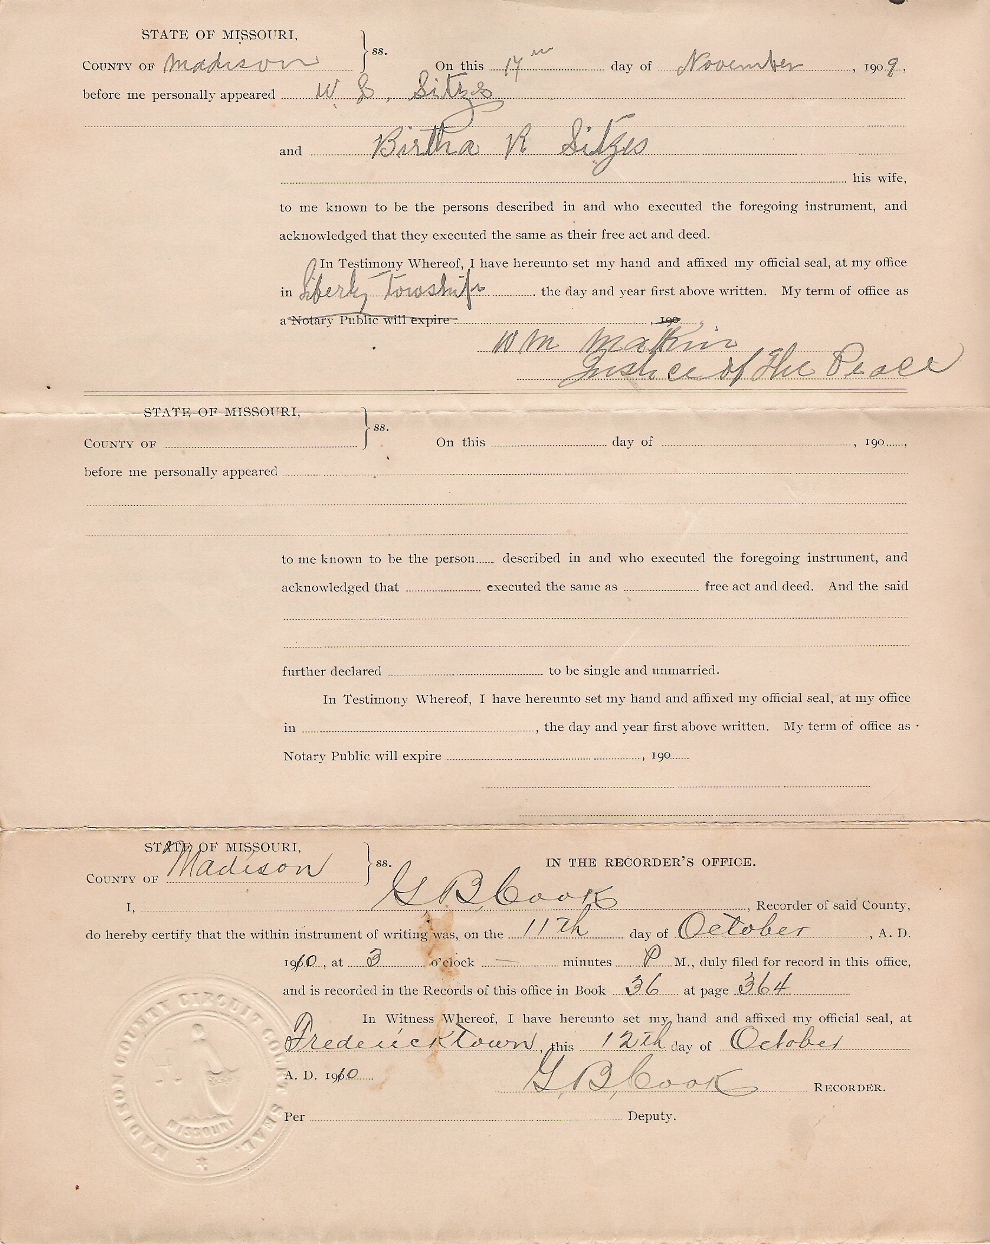 STATE OF MISSOURI,
COUNTY OF Madison } ss. On this 17th day of November, 1909,
before me personally appeared W. S. Sitzes
and Birtha R Sitzes
his wife,
to me known to be the persons described in and who executed the foregoing instrument, and
acknowledged that they executed the same as their free act and deed.
In Testimony Whereof, I have hereunto set my hand and affixed my official seal, at my office
in Liberty Township the day and year first above written. My term of office as
a Notary Public will expire 190
Wm Malkin
Justice of the Peace
STATE OF MISSOURI,
COUNTY OF } ss. On this day of , 190 ,
before me personally appeared
to me known to be the person described in and who executed the foregoing instrument, and
acknowledged that executed the same as free act and deed. And the said
further declared to be single and unmarried.
In Testimony Whereof, I have hereunto set my hand and affixed my official seal, at my office
in , the day and year first above written. My term of office as
Notary Public will expire , 190
STATE OF MISSOURI,
COUNTY OF Madison } ss. IN THE RECORDER'S OFFICE.
I, G. B. Cook, Recorder of said County,
do hereby certify that the within instrument of writing was, on the 11th day of October, A. D.
1910, at 3 o'clock — minutes P M., duly filed for record in this office,
and is recorded in the Records of this office in Book 36 at page 364
In Witness Whereof, I have hereunto set my hand and affixed my official seal, at
Fredericktown, this 12th day of October
A. D. 1910 G. B. Cook RECORDER.
Per Deputy.
MADISON COUNTY CIRCUIT COURT SEAL.
MISSOURI